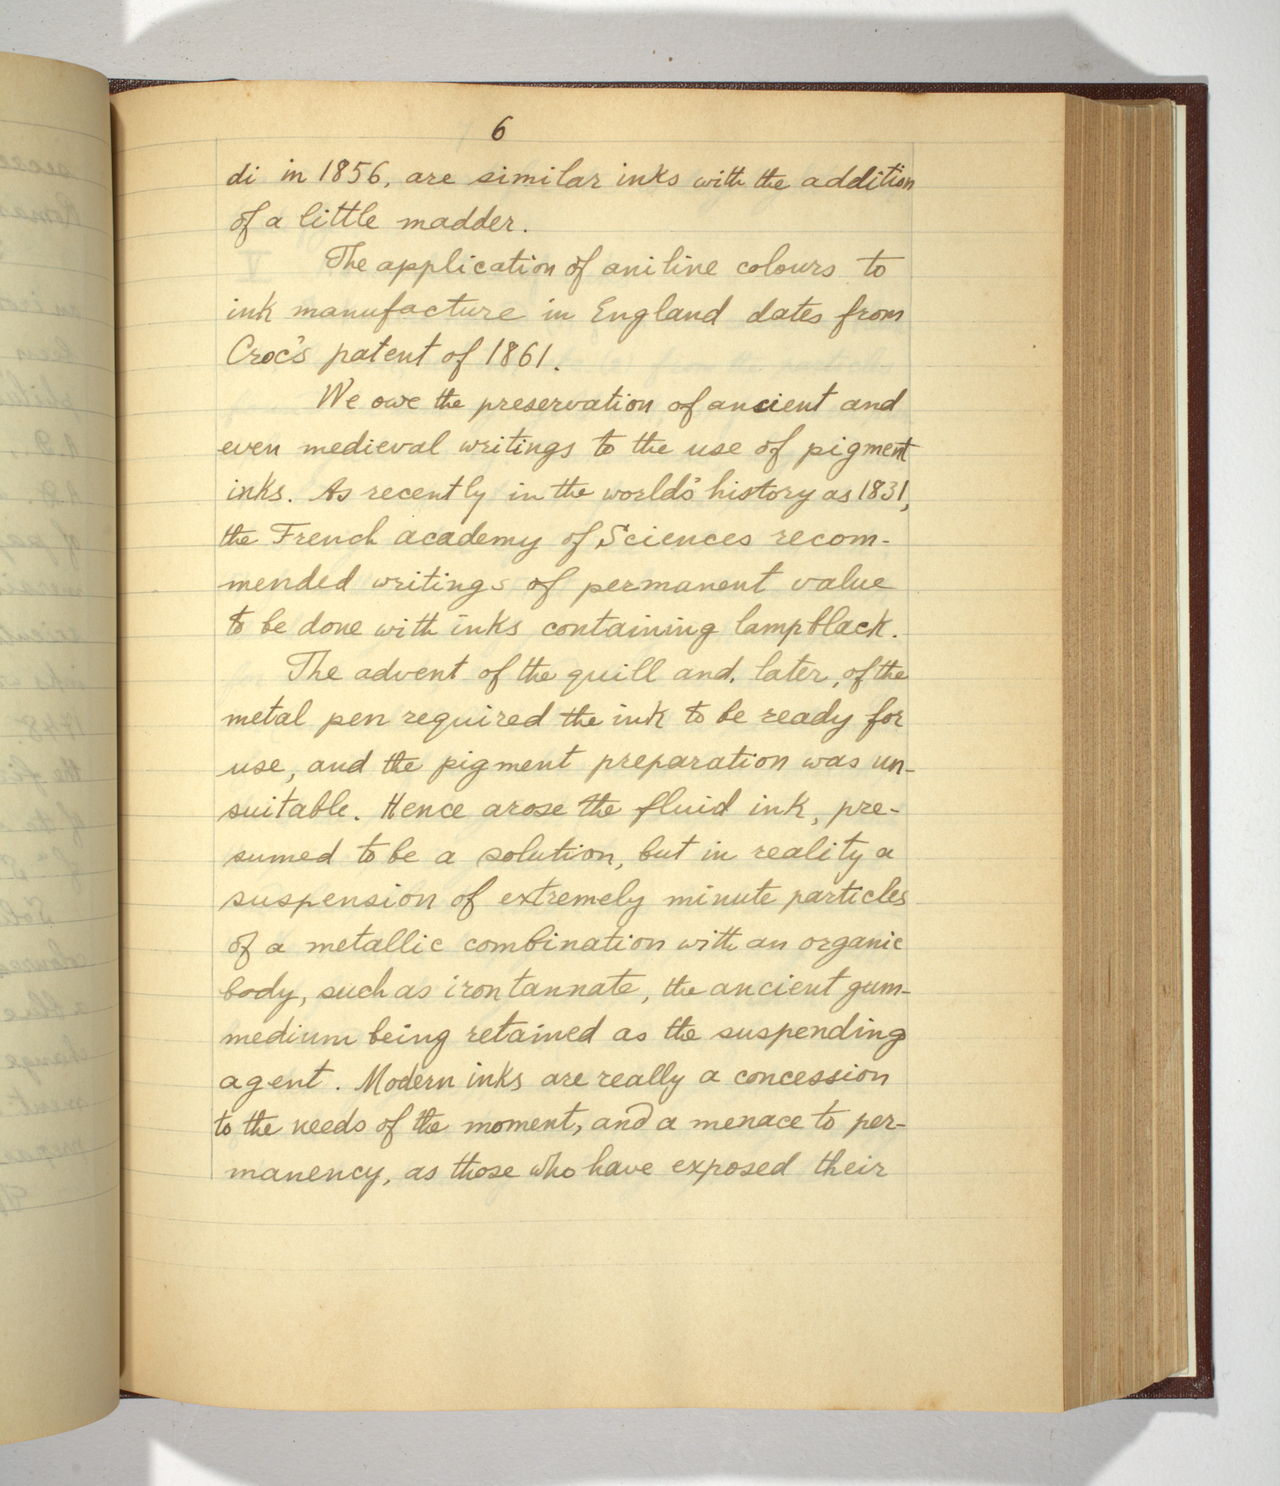 6
di in 1856, are similar inks with the addition
of a little madder.
The application of aniline colours to
ink manufacture in England dates from
Croc's patent of 1861.
We owe the preservation of ancient and
even medieval writings to the use of pigment
inks. As recently in the worlds' history as 1831,
the French academy of Sciences recom-
mended writings of permanent value
to be done with inks containing lampblack.
The advent of the quill and, later, of the
metal pen required the ink to be ready for
use, and the pigment preparation was un-
suitable. Hence arose the fluid ink, pre-
sumed to be a solution, but in reality a
suspension of extremely minute particles
of a metallic combination with an organic
body, such as iron tannate, the ancient gum-
medium being retained as the suspending
agent. Modern inks are really a concession
to the needs of the moment, and a menace to per-
manency, as those who have exposed their